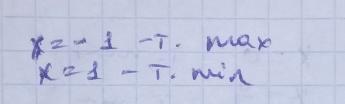 x = - 1 - т. max
x = 1 - т. min